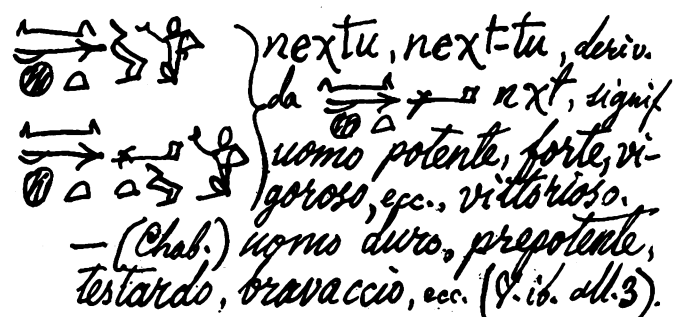 nextu, next-tu, deriv.
da nxt, signif
uomo potente, forte, vi-
goroso, ecc., vittorioso.
— (Chab.) uomo duro, prepotente,
testardo, bravaccio, ecc. (V. ib. all. 3).